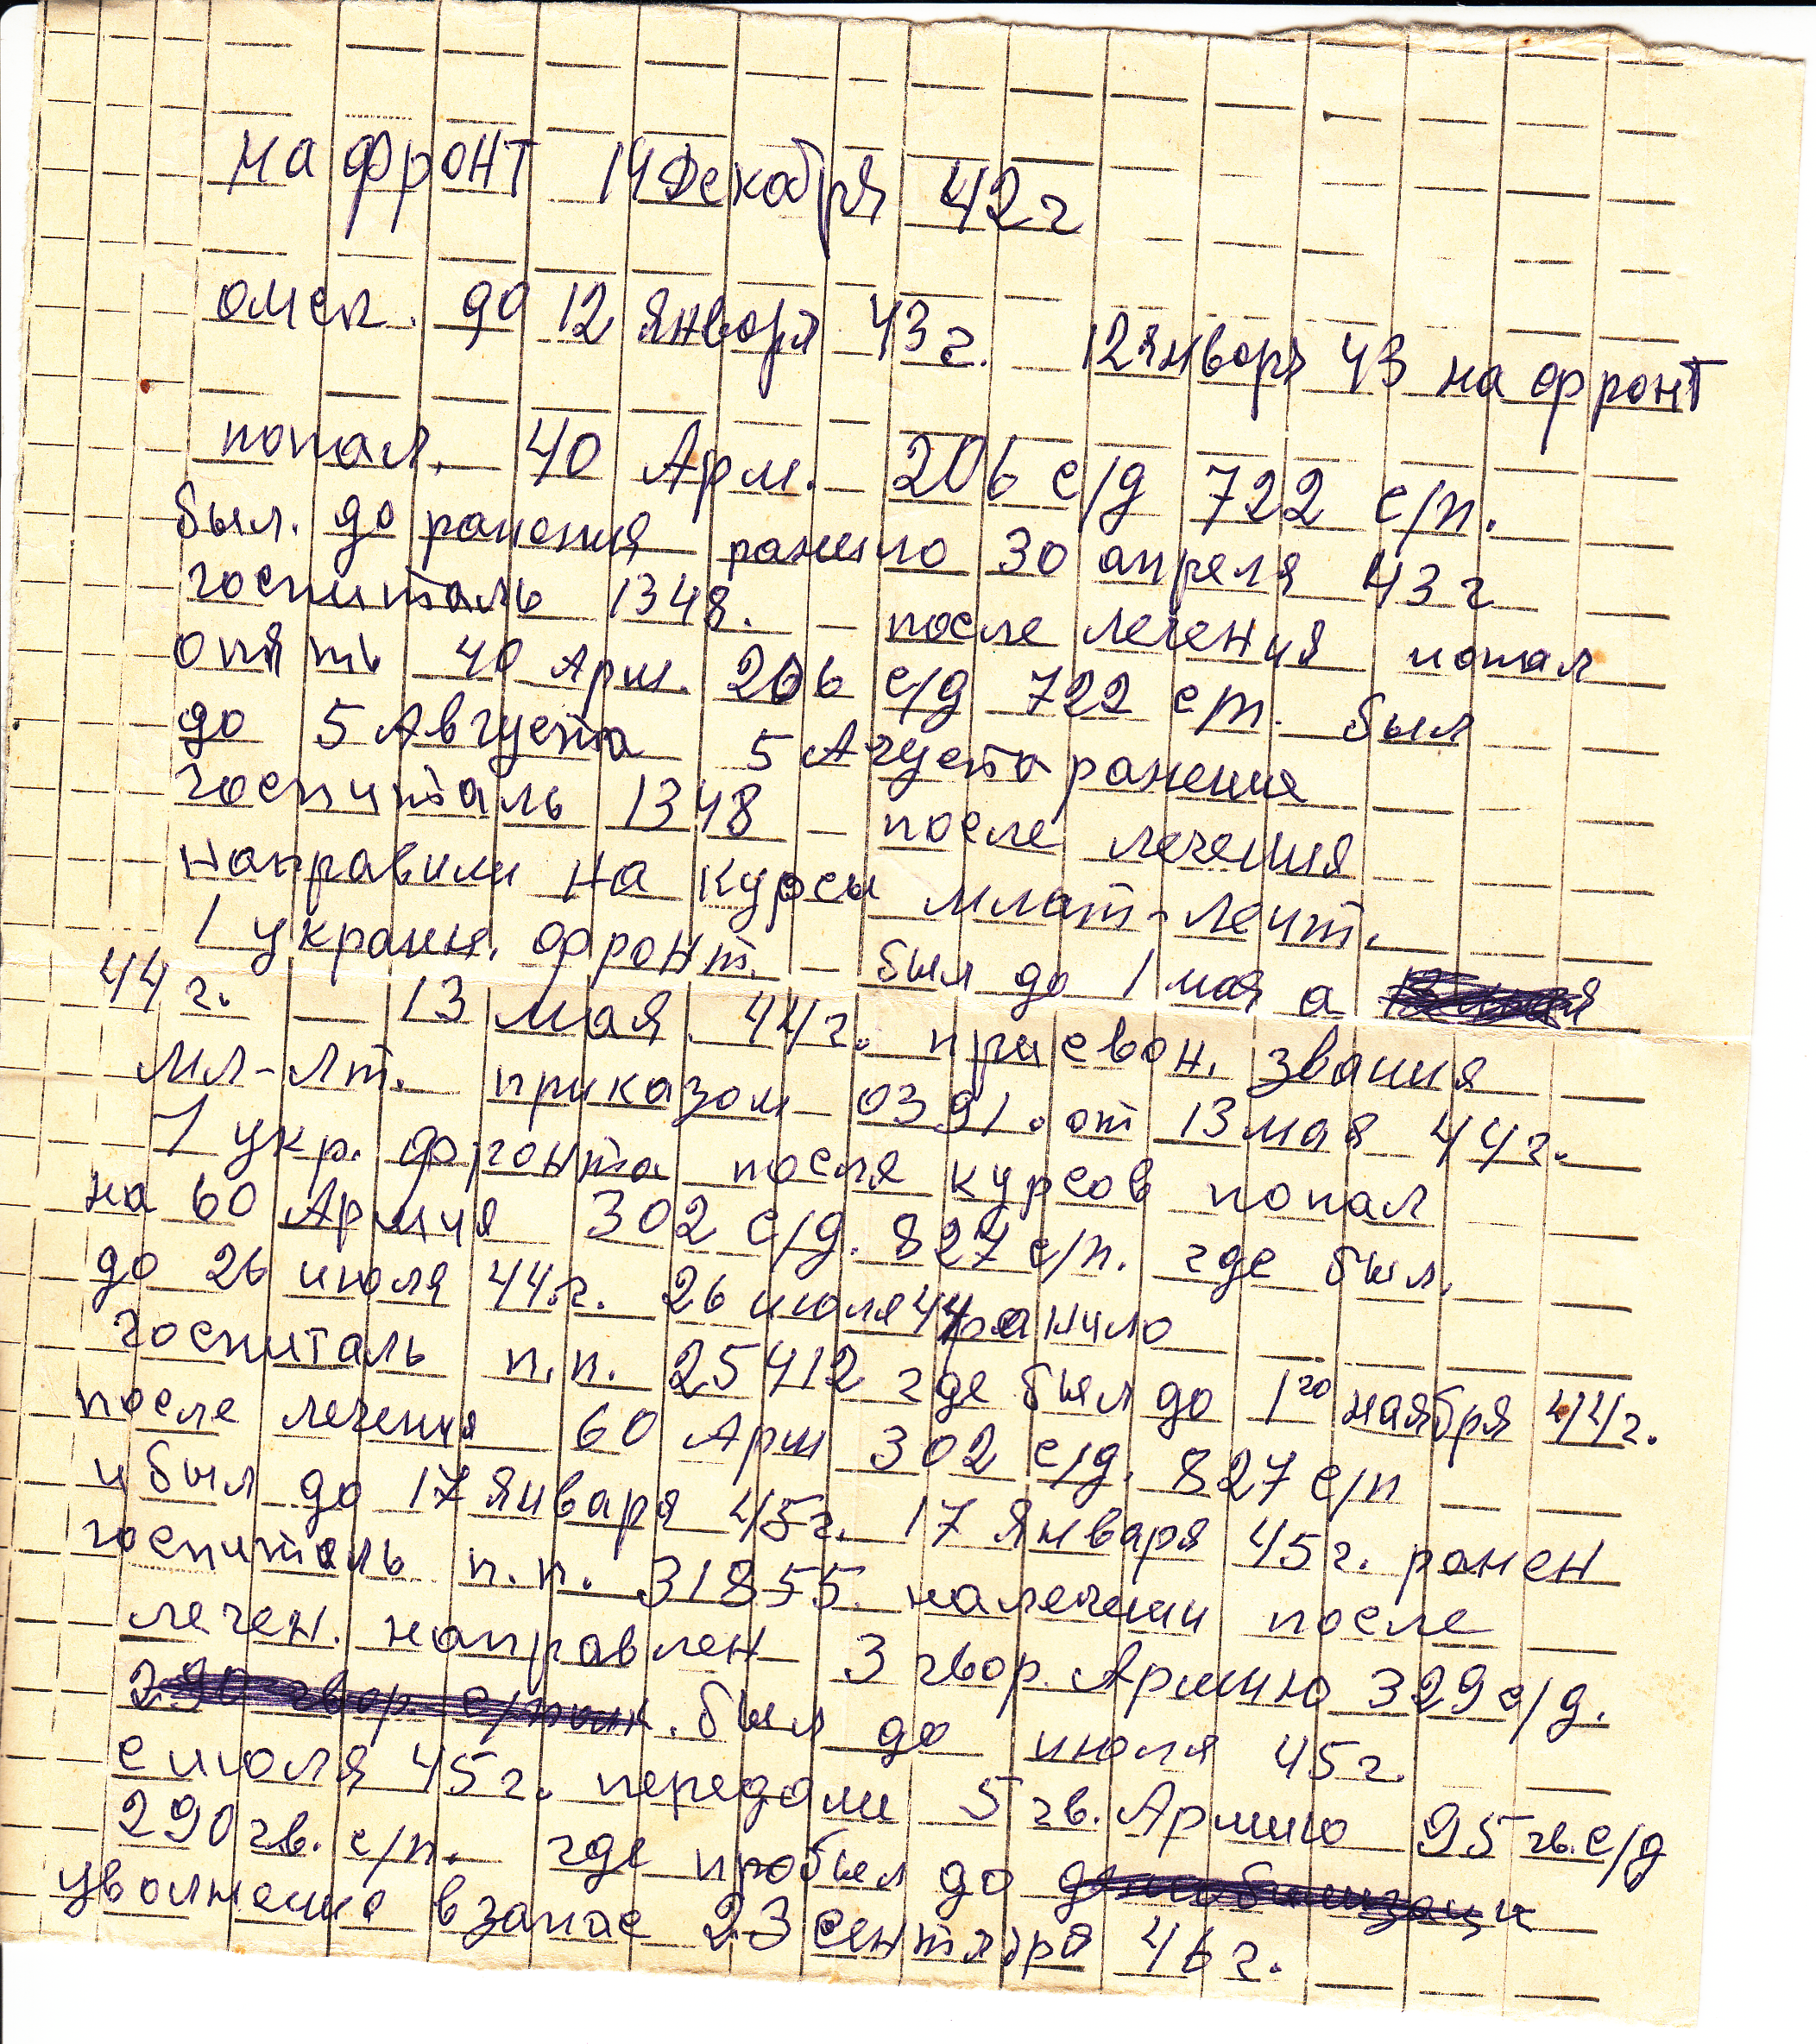 на фронт 14 Декабря 42 г
омск. до 12 января 43 г. 12 января 43 на фронт
попал. 40 Арм. 206 с/д 722 с/п.
был. до ранения ранило 30 апреля 43 г
госпиталь 1348. – после лечения попал
опять 40 Арм. 206 с/д 722 с/п. был
до 5 Августа 5 Агуста ранения
госпиталь 1348 – после лечения
направили на курсы млат-лейт.
1 украин. фронт. – был до 1 мая а
44 г. – 13 мая. 44 г. присвон. звания
мл-лт. приказом 0391. от 13 мая 44 г.
1 укр. фронта после курсов попал
на 60 Армия 302 с/д. 827 с/п. где был.
до 26 июля 44.г. 26 июля 44 ранило
госпиталь п.п. 25412 где был до 1го наября 44 г.
после лечения 60 Арм 302 с/д. 827 с/п
и был до 17 января 45 г. 17 января 45 г. ранен
госпиталь п.п. 31855. на лечении после
лечен. направлен 3 гвор. Армию 329 с/д.
290 гвор. с/полк. был до июля 45 г.
с июля 45 г. передали 5 гв. Армию 95 гв. с/д
290 гв. с/п. где пробыл до демобилизаци
уволнение в запас 23 сентября 46 г.